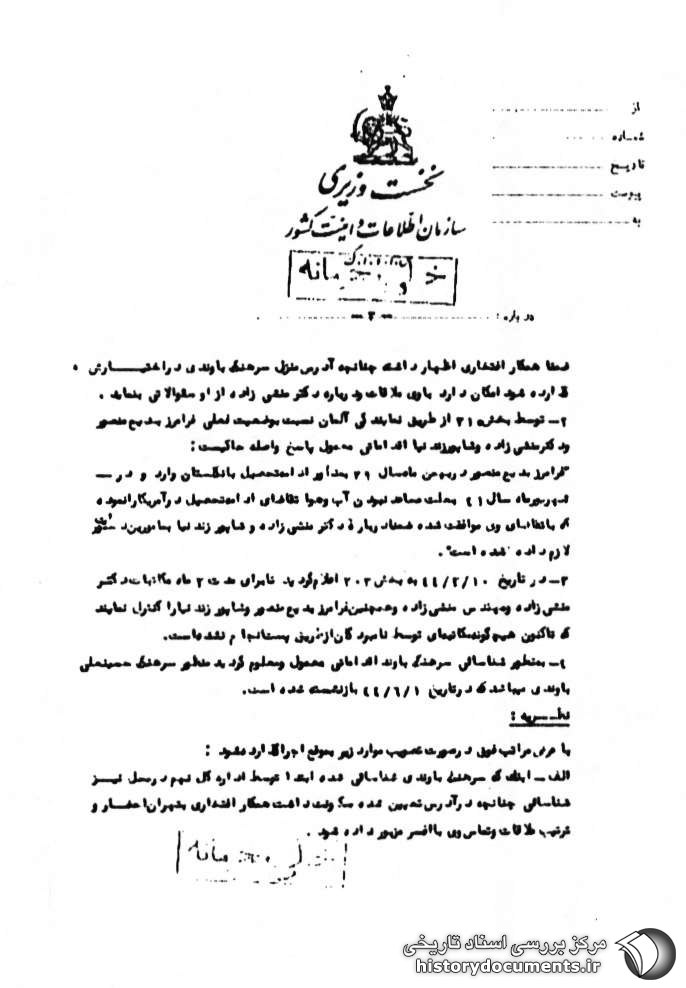 از
شماره
تاریخ
پیوست
به
نخست وزیری
سازمان اطلاعات و امنیت کشور
خیلی محرمانه
درباره : ــ ۳ ــ
ضمنا همکار افتخاری اظهار داشته چنانچه آدرس منزل سرهنگ باوندی در اختیــــــارش
قرار داده شود امکان دارد باوی ملاقات ودرباره دکتر منشی زاده از او سئوالاتی بنماید .
۲ــ توسط بخش ۲۱ از طریق نمایندگی آلمان نسبت بوضعیت فعلی فرامرز بدیع منصور
ودکتر منشی زاده وشاپور زند نیا اقداماتی معمول پاسخ واصله حاکیست :
"فرامرز بدیع منصور در بهمن ماه سال ۳۹ بمنظور ادامه تحصیل بانگلستان وارد و در ــ
شهریور ماه سال ۴۱ بعلت مساعد نبودن آب وهوا تقاضای ادامه تحصیل در آمریکا را نموده
که با تقاضای وی موافقت شده ضمنا درباره دکتر منشی زاده و شاپور زند نیا بمامورین دستور
لازم داده شده است" .
۳ــ در تاریخ ۴۴/۲/۱۰ به بخش ۲۰۳ اعلام گردید تا برای مدت ۲ ماه مکاتبات دکتر
منشی زاده ومهندس منشی زاده وهمچنین فرامرز بدیع منصور وشاپور زند نیا را کنترل نمایند
که تاکنون هیچگونه مکاتبه‌ای توسط نامبردگان از طریق پست انجام نشده است.
۴ــ بمنظور شناسائی سرهنگ باوند اقداماتی معمول ومعلوم گردید منظور سرهنگ حسینعلی
باوندی میباشد که در تاریخ ۴۴/۶/۱ بازنشسته شده است.
نظــریه :
با عرض مراتب فوق در صورت تصویب موارد زیر بموقع اجرا گذارده میشود :
الف ــ اینک که سرهنگ باوندی شناسائی شده ابتدا توسط اداره کل نهم در محل نیــز
شناسائی چنانچه در آدرس تعیین شده سکونت داشت همکار افتخاری بتهران احضار و
ترتیب ملاقات وتماس وی با افسر مزبور داده شود .
خیلی محرمانه
مرکز بررسی اسناد تاریخی
historydocuments.ir